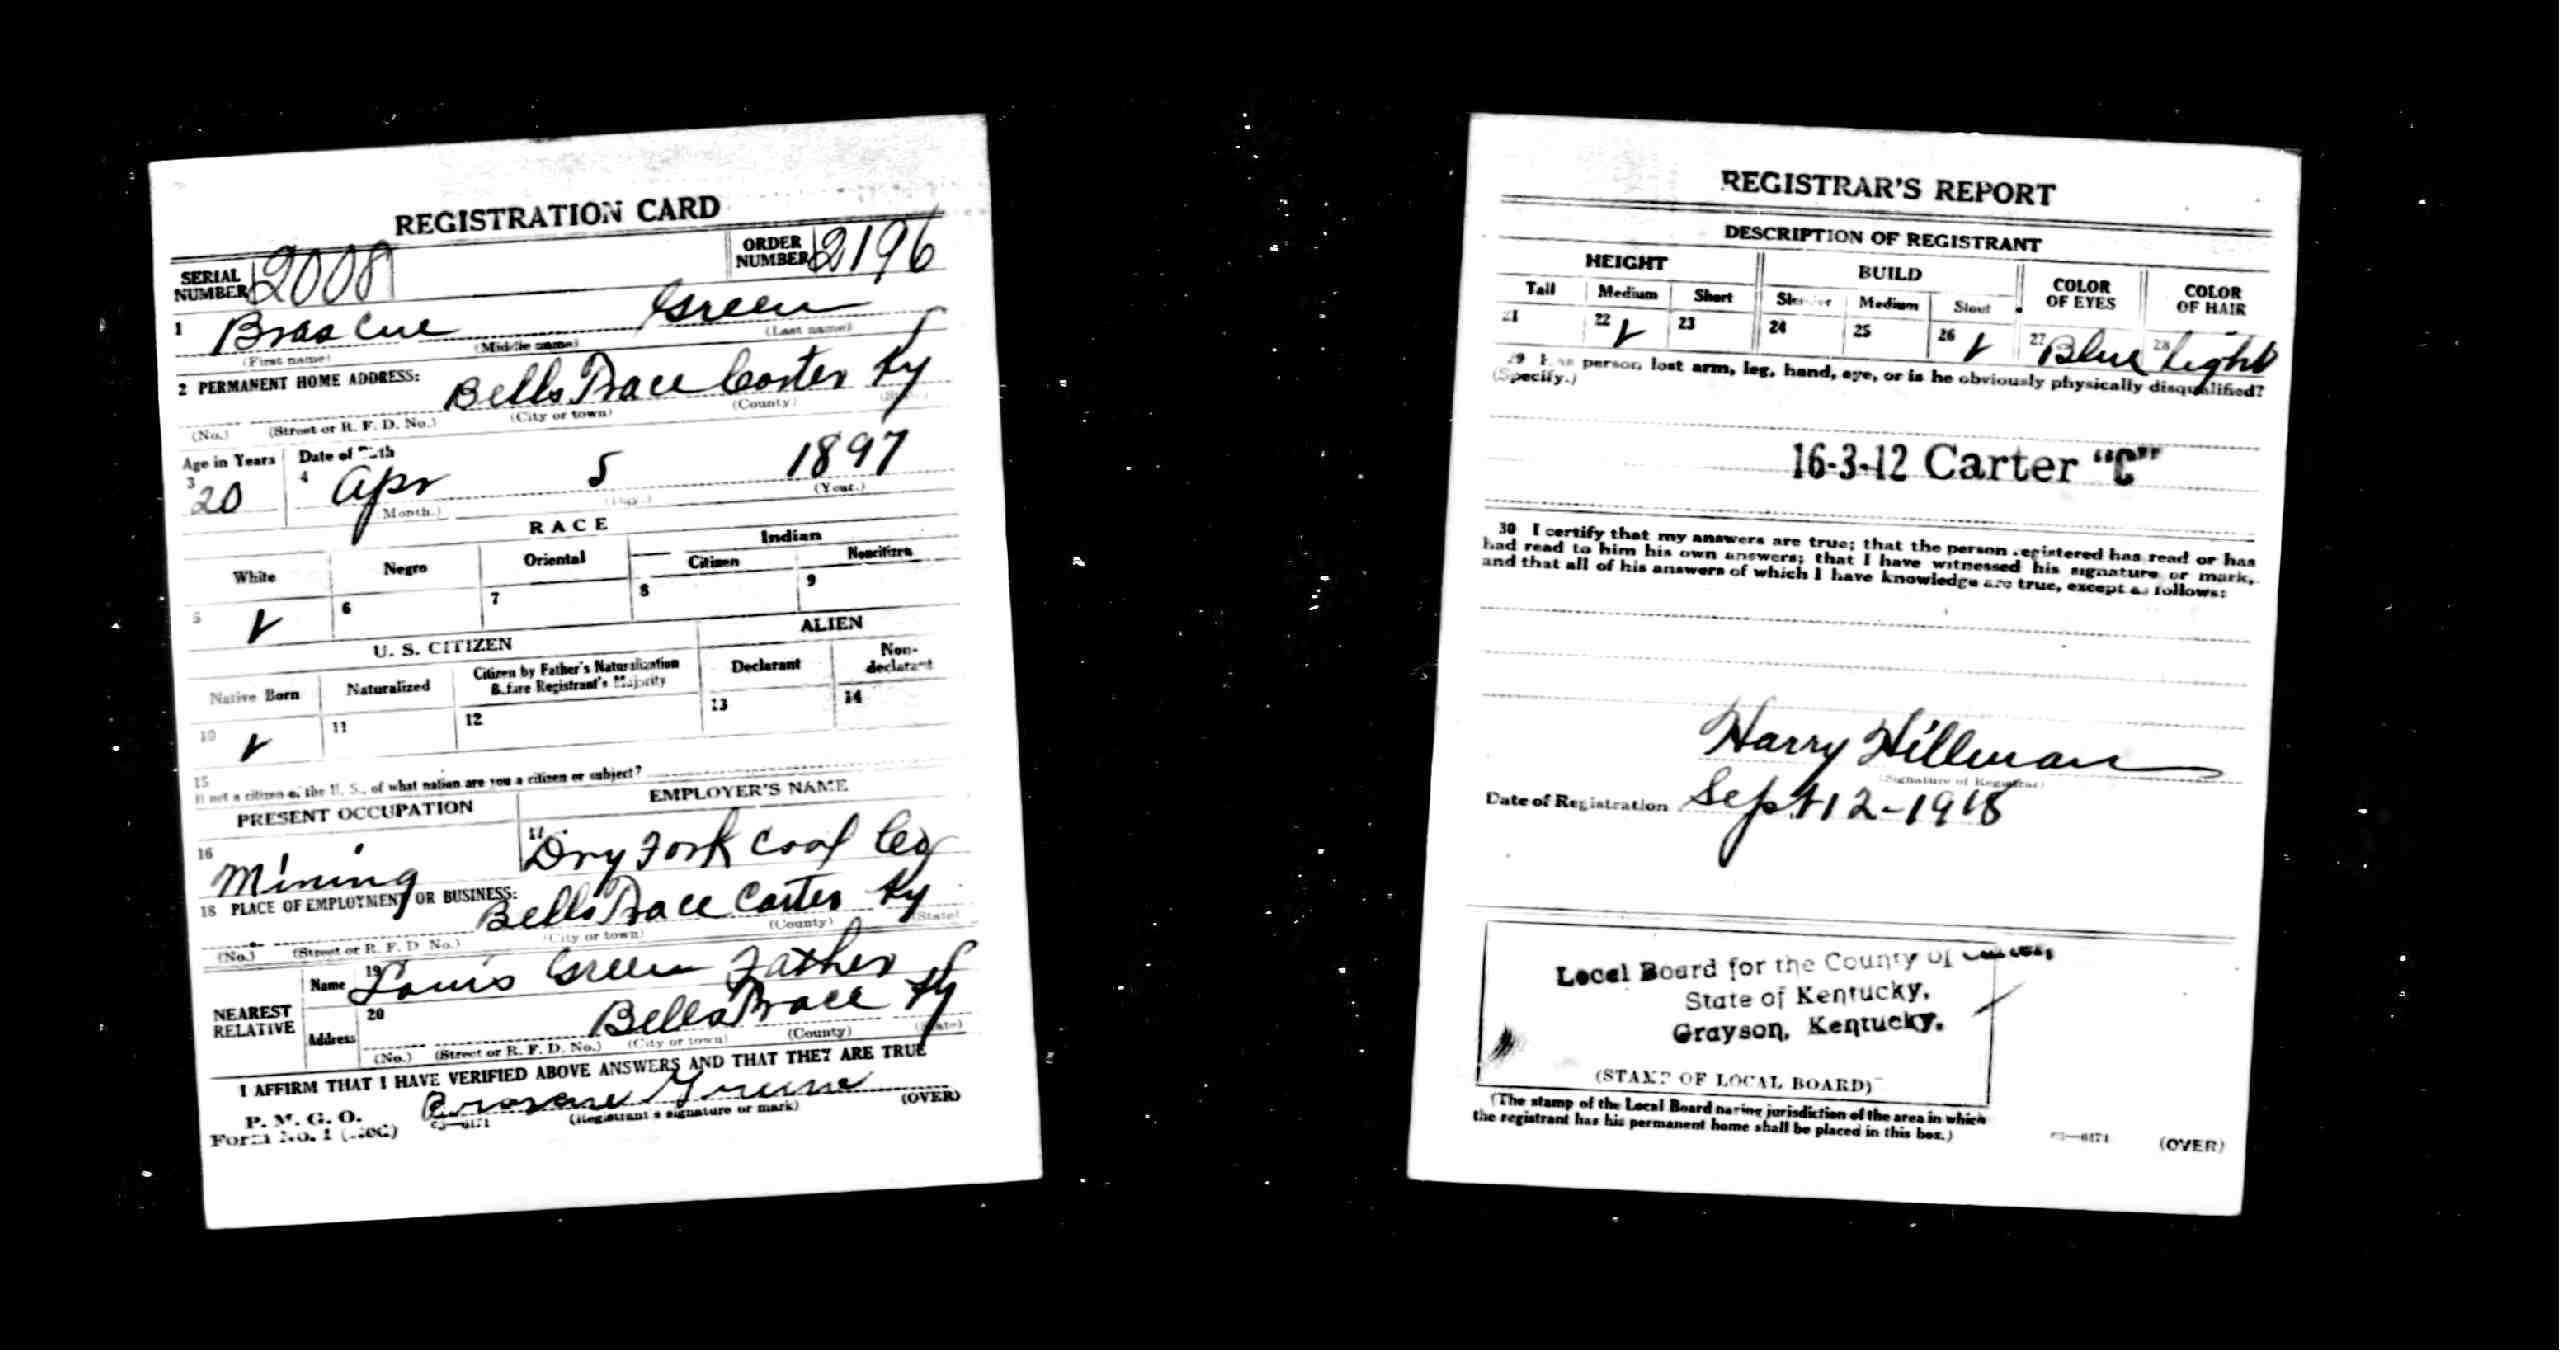 REGISTRATION CARD
SERIAL NUMBER 2008 ORDER NUMBER 2196
1 Brascue Green
(First name) (Middle name) (Last name)
2 PERMANENT HOME ADDRESS:
Bells Trace Carter Ky
(No.) (Street or R. F. D. No.) (City or town) (County) (State)
Age in Years Date of Birth
3 20 4 Apr 5 1897
(Month.) (Day.) (Year.)
RACE
White Negro Oriental Indian
Citizen Noncitizen
5 ✓ 6 7 8 9
U. S. CITIZEN ALIEN
Native Born Naturalized Citizen by Father's Naturalization Before Registrant's Majority Declarant Non-declarant
10 ✓ 11 12 13 14
15
If not a citizen of the U. S., of what nation are you a citizen or subject?
PRESENT OCCUPATION EMPLOYER'S NAME
16 Mining 17 Dry Fork Coal Co
18 PLACE OF EMPLOYMENT OR BUSINESS:
Bells Trace Carter Ky
(No.) (Street or R. F. D. No.) (City or town) (County) (State)
NEAREST RELATIVE
Name 19 Louis Green Father
Address 20 Bells Trace Ky
(No.) (Street or R. F. D. No.) (City or town) (County) (State)
I AFFIRM THAT I HAVE VERIFIED ABOVE ANSWERS AND THAT THEY ARE TRUE
P. M. G. O.
Form No. 1 (Red)
(Registrant's signature or mark) (OVER)
REGISTRAR'S REPORT
DESCRIPTION OF REGISTRANT
HEIGHT BUILD COLOR OF EYES COLOR OF HAIR
Tall Medium Short Slender Medium Stout
21 22 ✓ 23 24 25 26 ✓ 27 Blue 28 Light
29 Has person lost arm, leg, hand, eye, or is he obviously physically disqualified?
(Specify.)
16-3-12 Carter "C"
30 I certify that my answers are true; that the person registered has read or has
had read to him his own answers; that I have witnessed his signature or mark,
and that all of his answers of which I have knowledge are true, except as follows:
Harry Hillman
(Signature of Registrar)
Date of Registration Sept 12-1918
Local Board for the County of Carter,
State of Kentucky,
Grayson, Kentucky.
(STAMP OF LOCAL BOARD)
(The stamp of the Local Board having jurisdiction of the area in which
the registrant has his permanent home shall be placed in this box.)
(OVER)